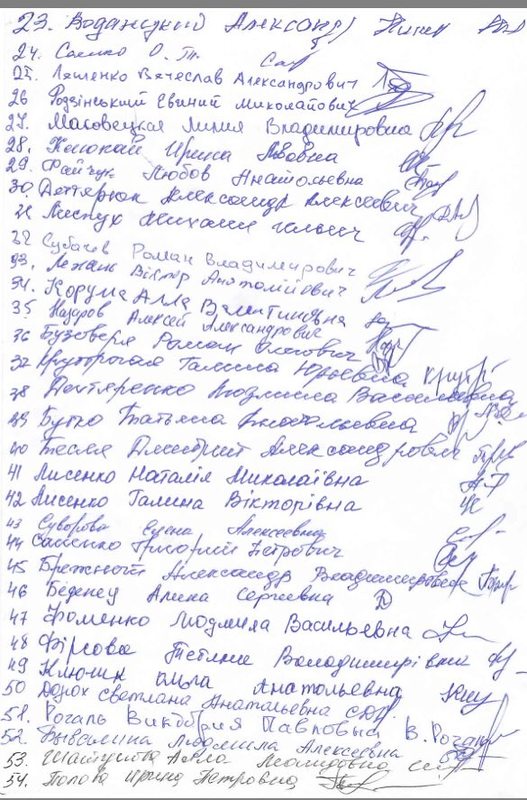 23. Александр
24. Саенко О.
25. Ляшенко Вячеслав Александрович
26 Родзінський Євгиний Миколайович
27. Масовецкая Лилия Владимировна
28. Ирина Львовна
29. Файчук Любов Анатольевна
30 Дегтярюк Александр Алексеевич
31 Листух Михаил Ильич
32 Субачев Роман Владимирович
33. Лежаик Віктор Анатолійович
34. Коруна Алла Валентиновна
35 Назаров Алексей Александрович
36 Бузоверя Роман Олегович
37 Галина Юрьевна
38 Дегтяренко Людмила Васильевна
39 Бутко Татьяна Анатольевна
40 Тесля Дмитрий Александрович
41 Лисенко Наталія Миколаївна
42 Лисенко Галина Вікторівна
43 Суворова Елена Алексеевна
44 Саиенко Григорий Петрович
45 Александр Владимирович
46 Беденец Алина Сергиевна
47 Фоменко Людмила Васильевна
48 Фірсова Тетяна Володимирівна
49 Ключик Ольга Анатольевна
50 Дорох Светлана Анатольевна
51. Рогаль Виктория Павловна В. Рогаль
52. Бывалина Людмила Алексеевна
53. Шайтунова Алла Леонидовна
54. Попова Ирина Петровна